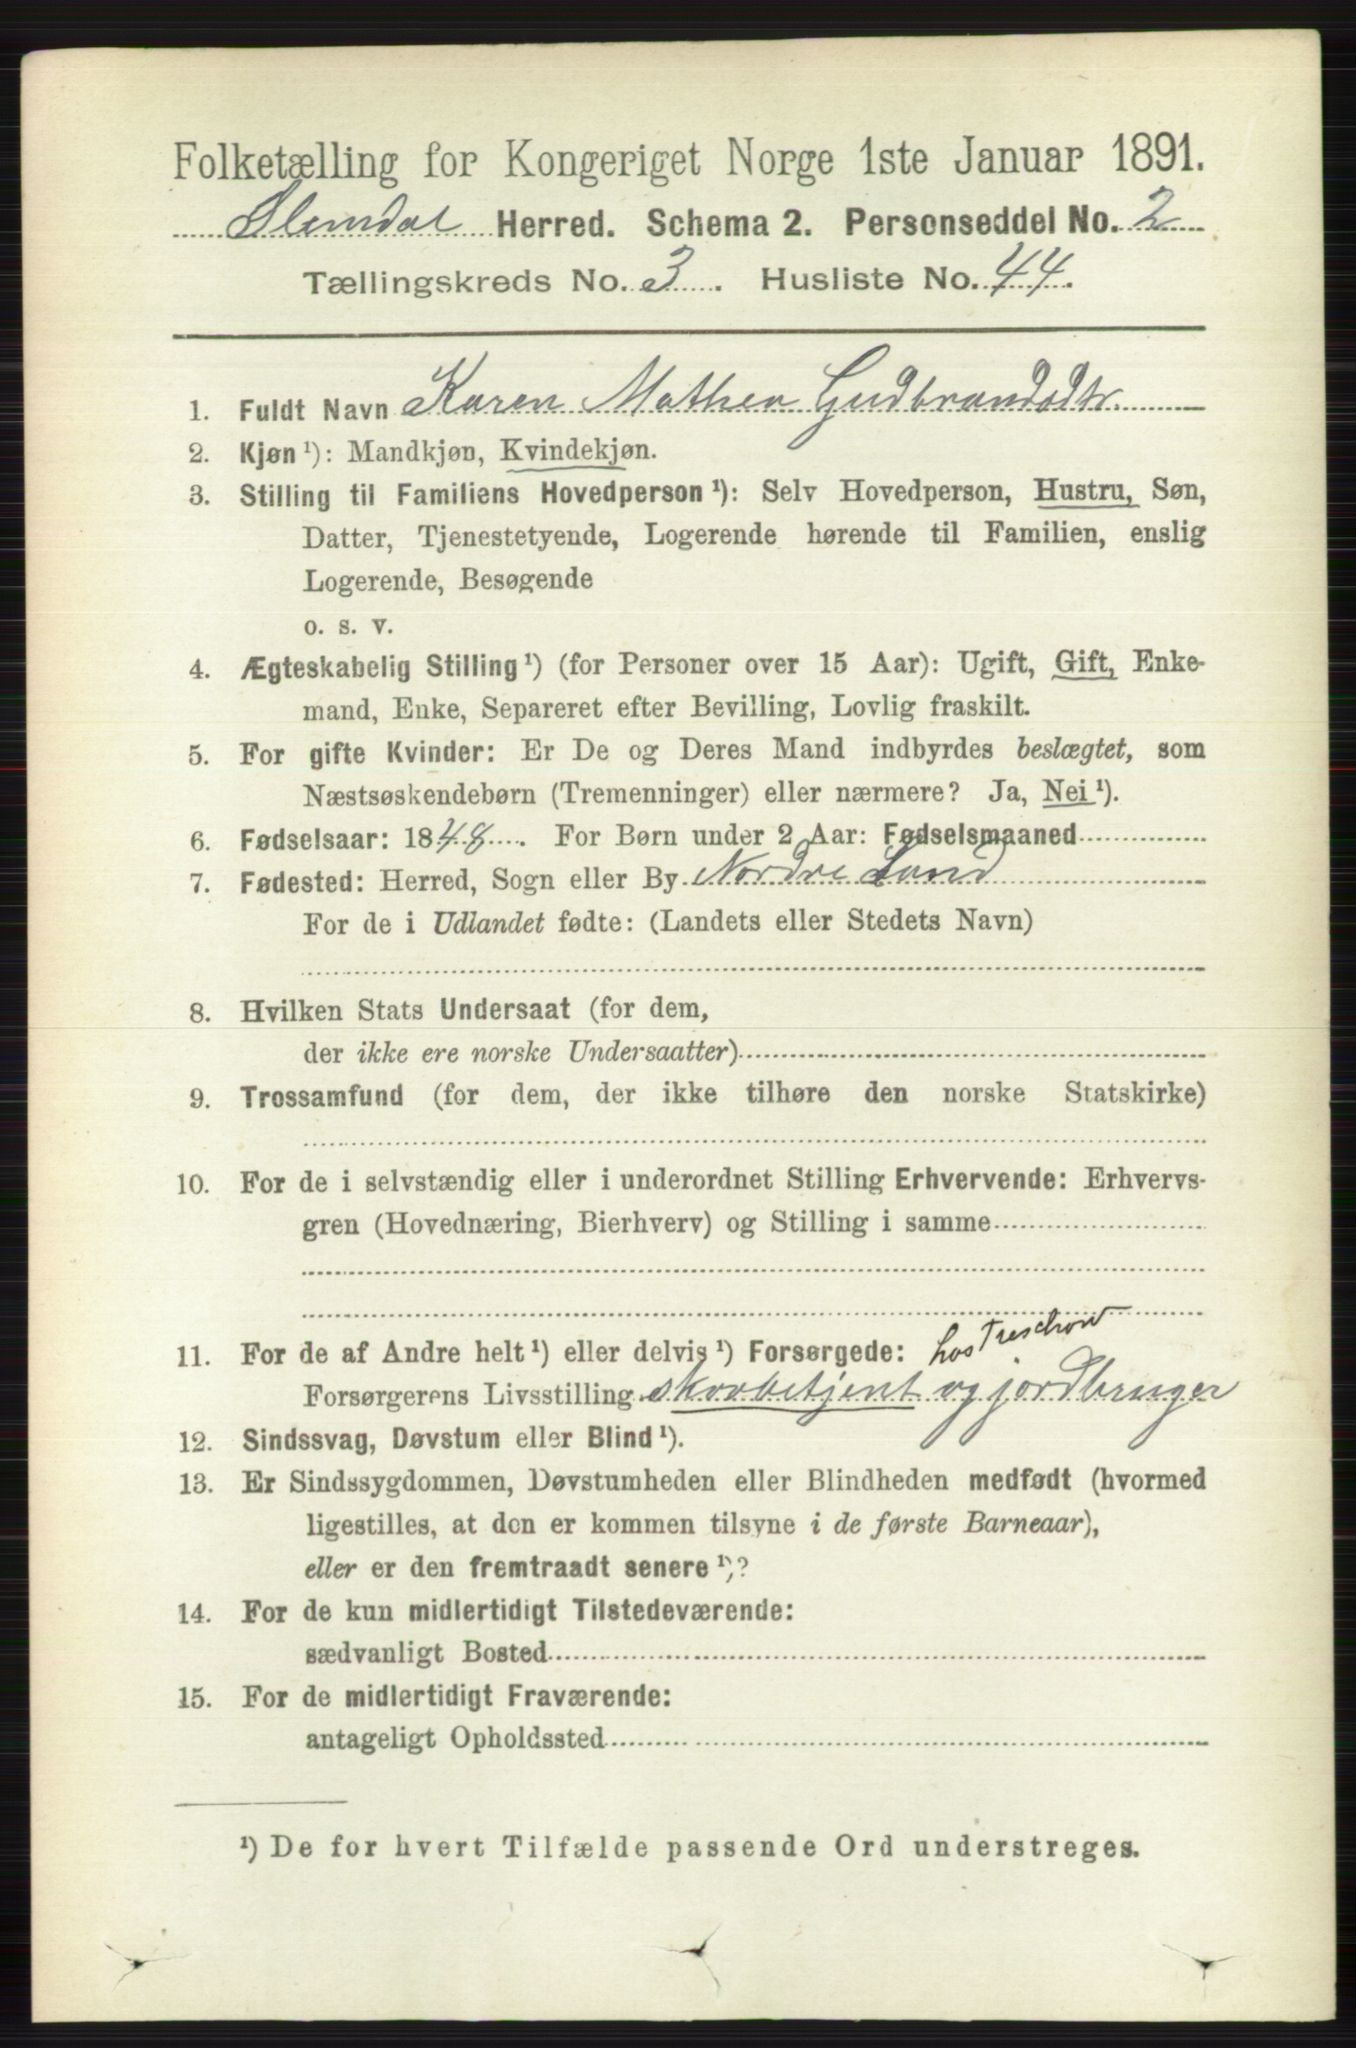 Folketælling for Kongeriget Norge 1ste Januar 1891.
Slemdal Herred. Schema 2. Personseddel No. 2
Tællingskreds No. 3. Husliste No. 44.
1. Fuldt Navn Karen Mathea Gudbrandsdtr.
2. Kjøn ¹): Mandkjøn, Kvindekjøn.
3. Stilling til Familiens Hovedperson ¹): Selv Hovedperson, Hustru, Søn,
Datter, Tjenestetyende, Logerende hørende til Familien, enslig
Logerende, Besøgende
o. s. v.
4. Ægteskabelig Stilling ¹) (for Personer over 15 Aar): Ugift, Gift, Enke-
mand, Enke, Separeret efter Bevilling, Lovlig fraskilt.
5. For gifte Kvinder: Er De og Deres Mand indbyrdes beslægtet, som
Næstsøskendebørn (Tremenninger) eller nærmere? Ja, Nei ¹).
6. Fødselsaar: 1848. For Børn under 2 Aar: Fødselsmaaned
7. Fødested: Herred, Sogn eller By Nordre Land
For de i Udlandet fødte: (Landets eller Stedets Navn)
8. Hvilken Stats Undersaat (for dem,
der ikke ere norske Undersaatter)
9. Trossamfund (for dem, der ikke tilhøre den norske Statskirke)
10. For de i selvstændig eller i underordnet Stilling Erhvervende: Erhvervs-
gren (Hovednæring, Bierhverv) og Stilling i samme
hos Treschow
11. For de af Andre helt ¹) eller delvis ¹) Forsørgede:
Forsørgerens Livsstilling skovbetjent og jordbruger
12. Sindssvag, Døvstum eller Blind ¹).
13. Er Sindssygdommen, Døvstumheden eller Blindheden medfødt (hvormed
ligestilles, at den er kommen tilsyne i de første Barneaar),
eller er den fremtraadt senere ¹)?
14. For de kun midlertidigt Tilstedeværende:
sædvanligt Bosted
15. For de midlertidigt Fraværende:
antageligt Opholdssted
¹) De for hvert Tilfælde passende Ord understreges.